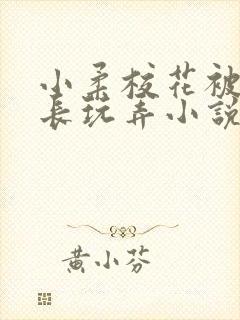 小柔校花被
长玩弄小說
黄小芬